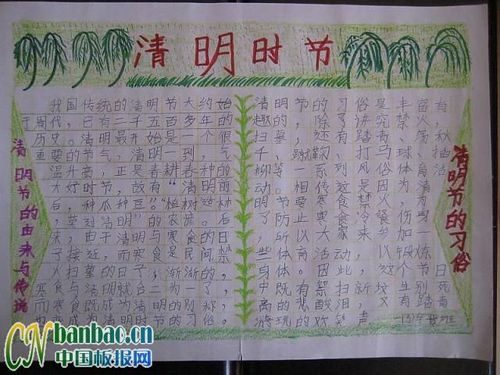 清明时节
清明节的由来与传说
我国传统的清明节大约始
于周代，已有二千五百多年的
历史。清明最开始是一个很
重要的节气，清明一到，气
温升高，正是春耕春种的
大好时节，故有“清明前
后，种瓜种豆”“植树造林
，莫到清明”的农谚。后
来，由于清明与寒食的日
子接近，而寒食是民间禁
火扫墓的日子，渐渐的，
寒食与清明就合二为一了，
而寒食既成为清明的别称，
清明时节的习俗。
清明节的习俗是丰富有
趣的，除了讲究禁火、
扫墓，还有踏青、荡秋
千、蹴鞠、打马球、插
柳等一系列风俗体育活
动。相传这是因为清
明节要寒食禁火，为
了防止寒食冷餐伤身
，所以大家来参加一
些体育活动，以锻炼
身体。因此，这个节日
中既有祭扫新坟生别死
离的悲酸泪，又有踏青
游玩的欢笑声
清明节的习俗
CNbanbao.cn
中国板报网